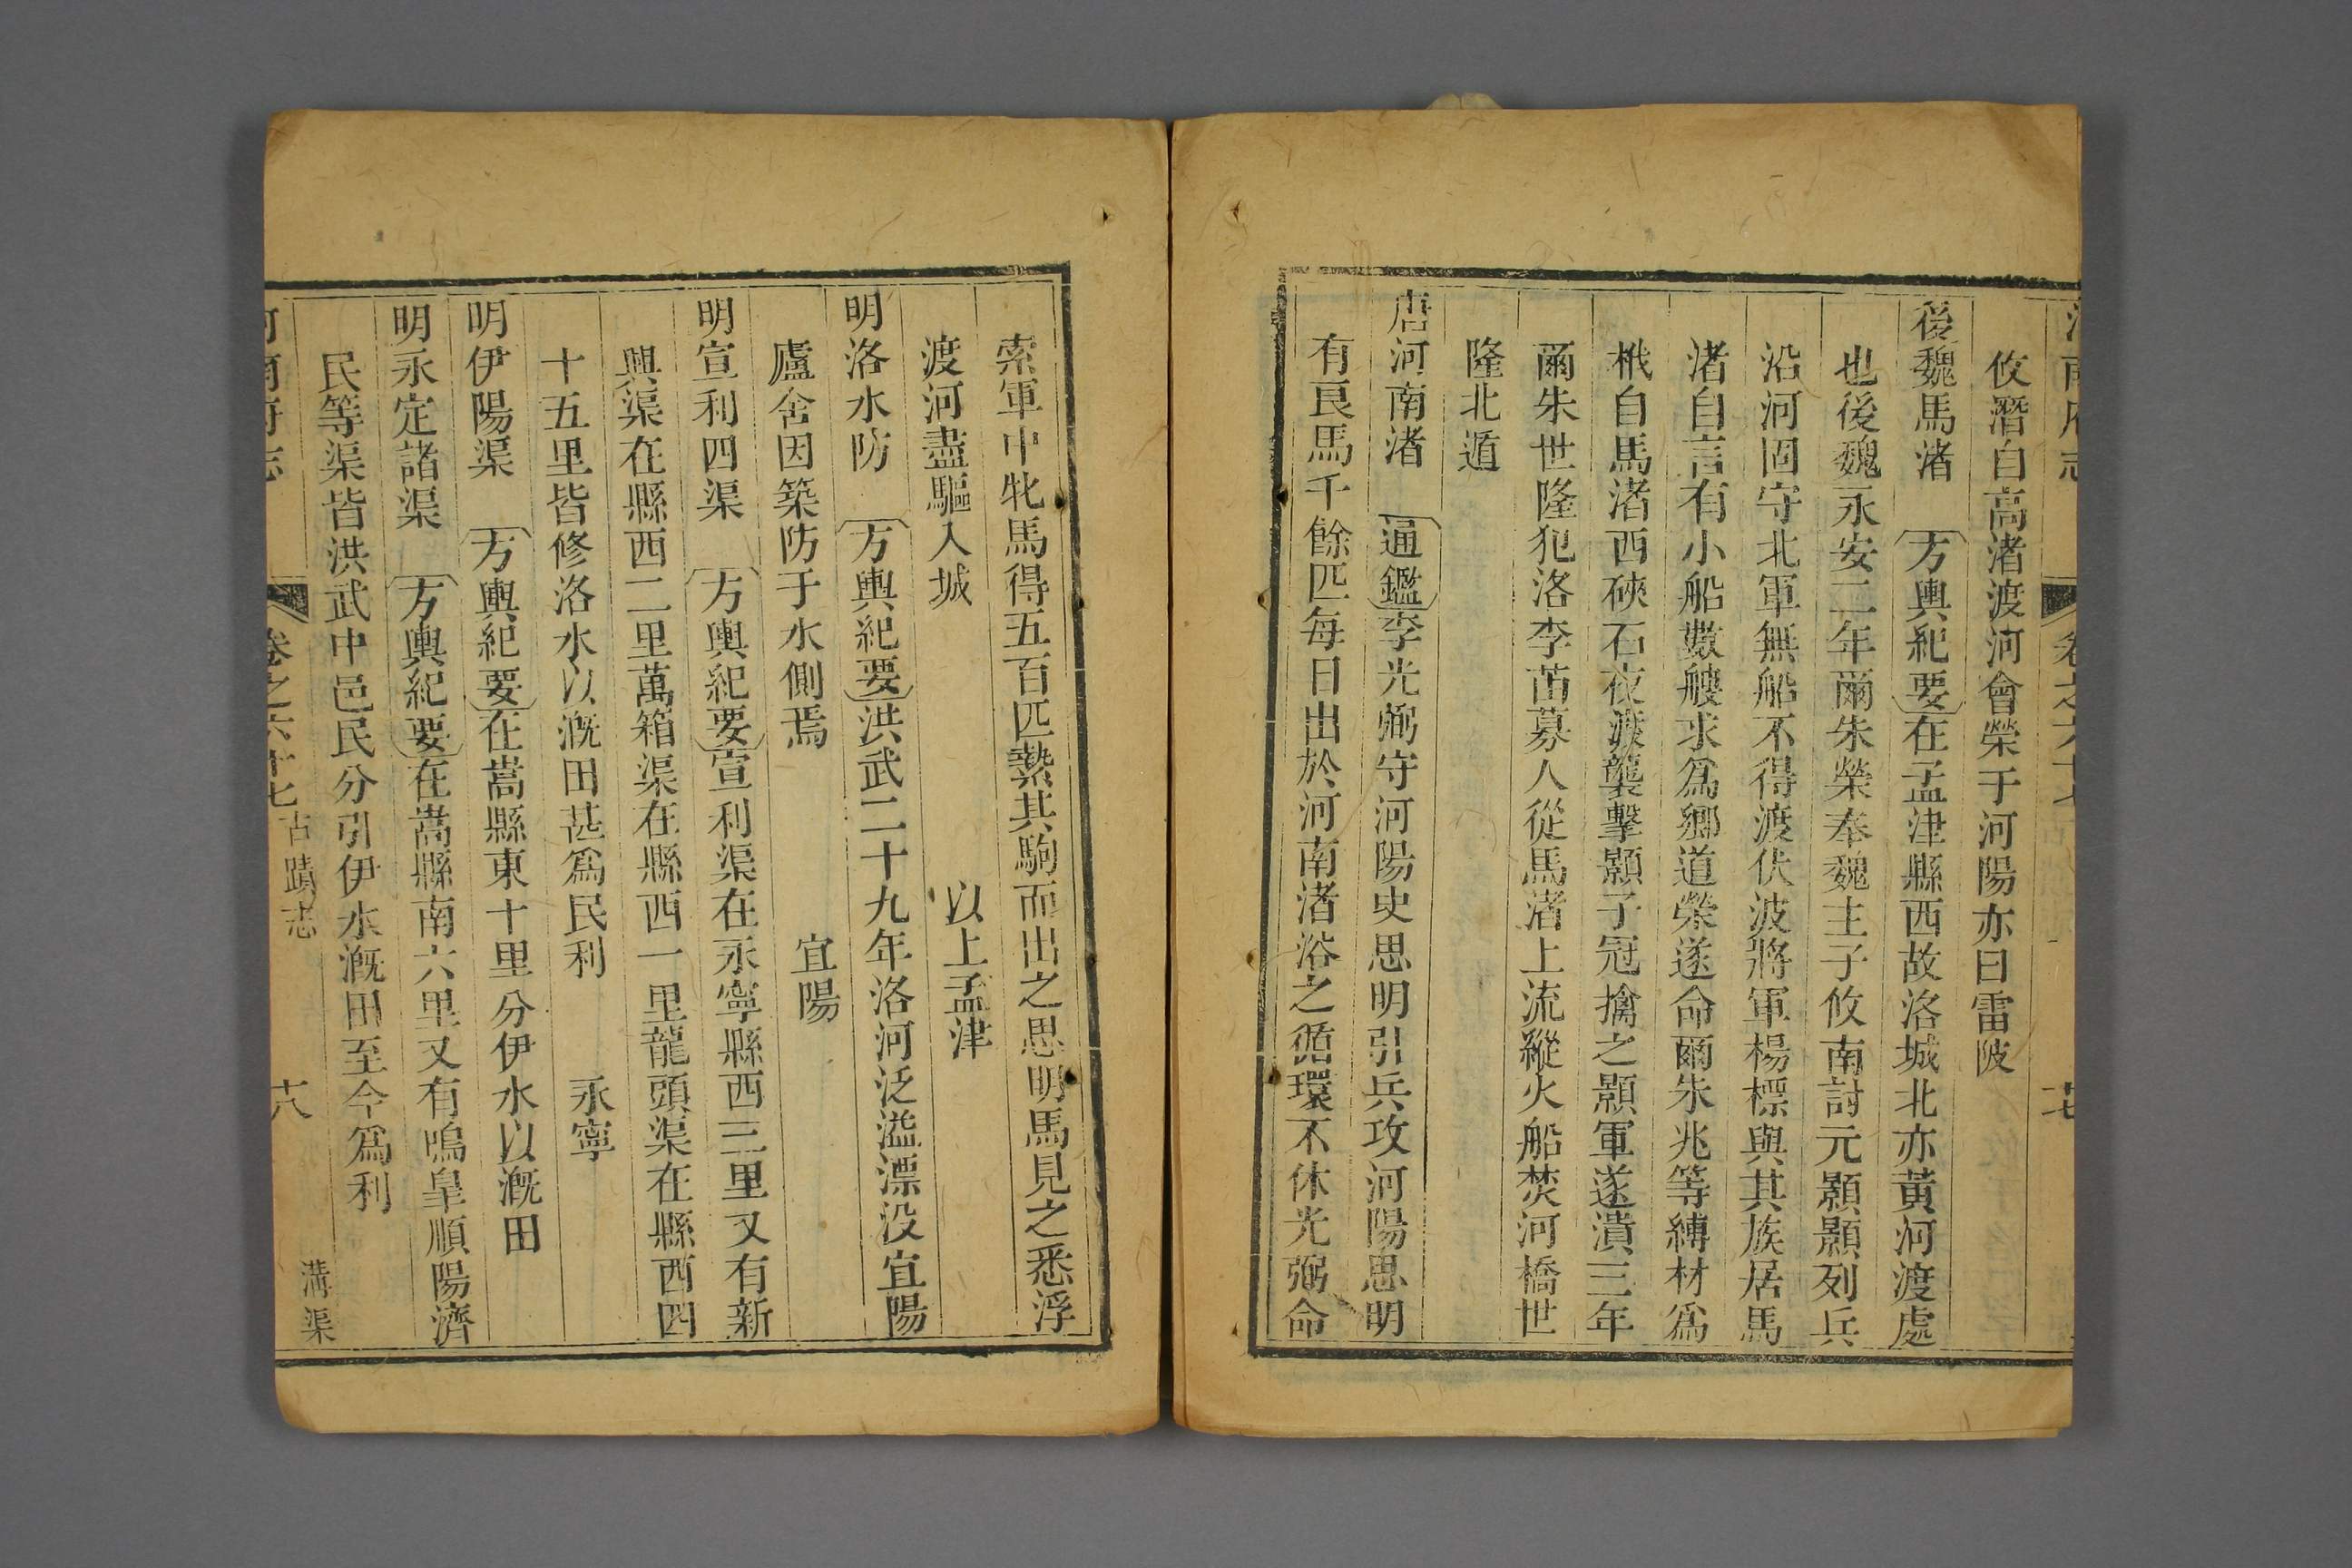 攸潛自高渚渡河會榮于河陽亦曰雷陂
後魏馬渚　方輿紀要在孟津縣西故洛城北亦黃河渡處
也後魏永安二年爾朱榮奉魏主子攸南討元顥顥列兵
沿河固守北軍無船不得渡伏波將軍楊標與其族居馬
渚自言有小船數艘求爲鄉道榮遂命爾朱兆等縛材爲
栰自馬渚西硤石夜渡襲擊顥子冠擒之顥軍遂潰三年
爾朱世隆犯洛李苗募人從馬渚上流縱火船焚河橋世
隆北遁
唐河南渚　通鑑李光弼守河陽史思明引兵攻河陽思明
有良馬千餘匹每日出於河南渚浴之循環不休光弼命
索軍中牝馬得五百匹縶其駒而出之思明馬見之悉浮
渡河盡驅入城　以上孟津
明洛水防　方輿紀要洪武二十九年洛河泛溢漂没宜陽
廬舍因築防于水側焉　宜陽
明宣利四渠　方輿紀要宣利渠在永寧縣西三里又有新
興渠在縣西二里萬箱渠在縣西一里龍頭渠在縣西四
十五里皆修洛水以漑田甚爲民利　永寧
明伊陽渠　方輿紀要在嵩縣東十里分伊水以漑田
明永定諸渠　方輿紀要在嵩縣南六里又有鳴皐順陽濟
民等渠皆洪武中邑民分引伊水漑田至今爲利
河南府志　卷之六十七　古蹟志　溝渠　十八